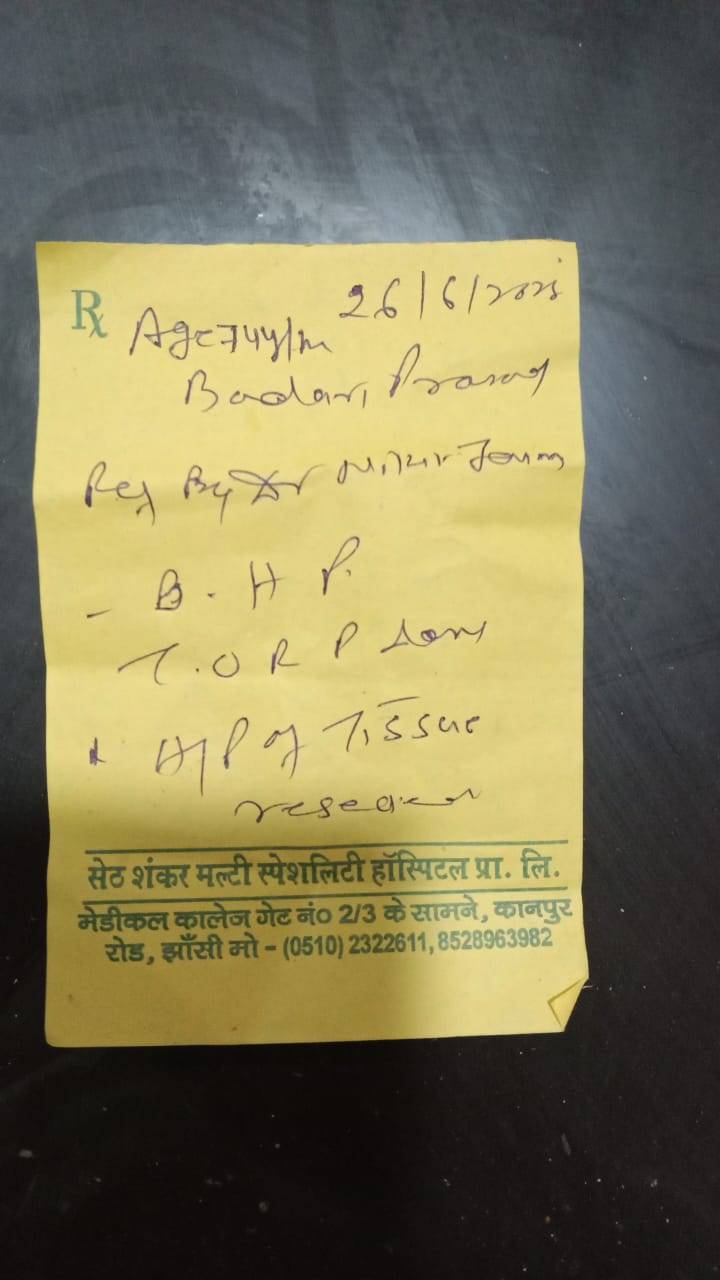 Rx
26/6/2025
Age 74y/m
Badari Prasad
Ref By Dr
- B. H P.
T. U R P done
H/P of Tissue
सेठ शंकर मल्टी स्पेशलिटी हॉस्पिटल प्रा. लि.
मेडीकल कालेज गेट नं० 2/3 के सामने, कानपुर
रोड, झाँसी मो - (0510) 2322611, 8528963982